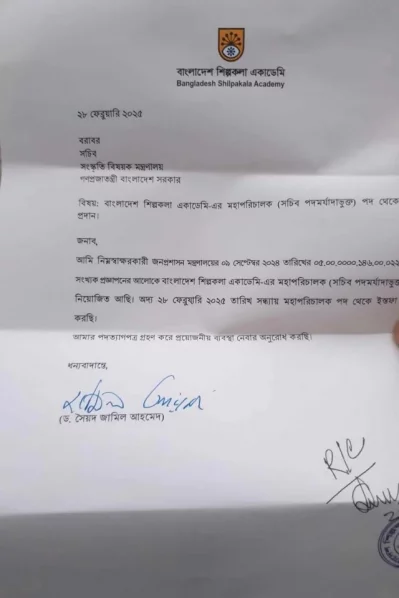 বাংলাদেশ শিল্পকলা একাডেমি
Bangladesh Shilpakala Academy
২৮ ফেব্রুয়ারি ২০২৫
বরাবর
সচিব
সংস্কৃতি বিষয়ক মন্ত্রণালয়
গণপ্রজাতন্ত্রী বাংলাদেশ সরকার
বিষয়: বাংলাদেশ শিল্পকলা একাডেমি-এর মহাপরিচালক (সচিব পদমর্যাদাভুক্ত) পদ থেকে
প্রদান।
জনাব,
আমি নিম্নস্বাক্ষরকারী জনপ্রশাসন মন্ত্রণালয়ের ০৯ সেপ্টেম্বর ২০২৪ তারিখের ০৫.০০.০০০০.১৪৬.০০.০২২
সংখ্যক প্রজ্ঞাপনের আলোকে বাংলাদেশ শিল্পকলা একাডেমি-এর মহাপরিচালক (সচিব পদমর্যাদাভুক্ত
নিয়োজিত আছি। অদ্য ২৮ ফেব্রুয়ারি ২০২৫ তারিখ সন্ধ্যায় মহাপরিচালক পদ থেকে ইস্তফা
করছি।
আমার পদত্যাগপত্র গ্রহণ করে প্রয়োজনীয় ব্যবস্থা নেবার অনুরোধ করছি।
ধন্যবাদান্তে,
(ড. সৈয়দ জামিল আহমেদ)
R/C